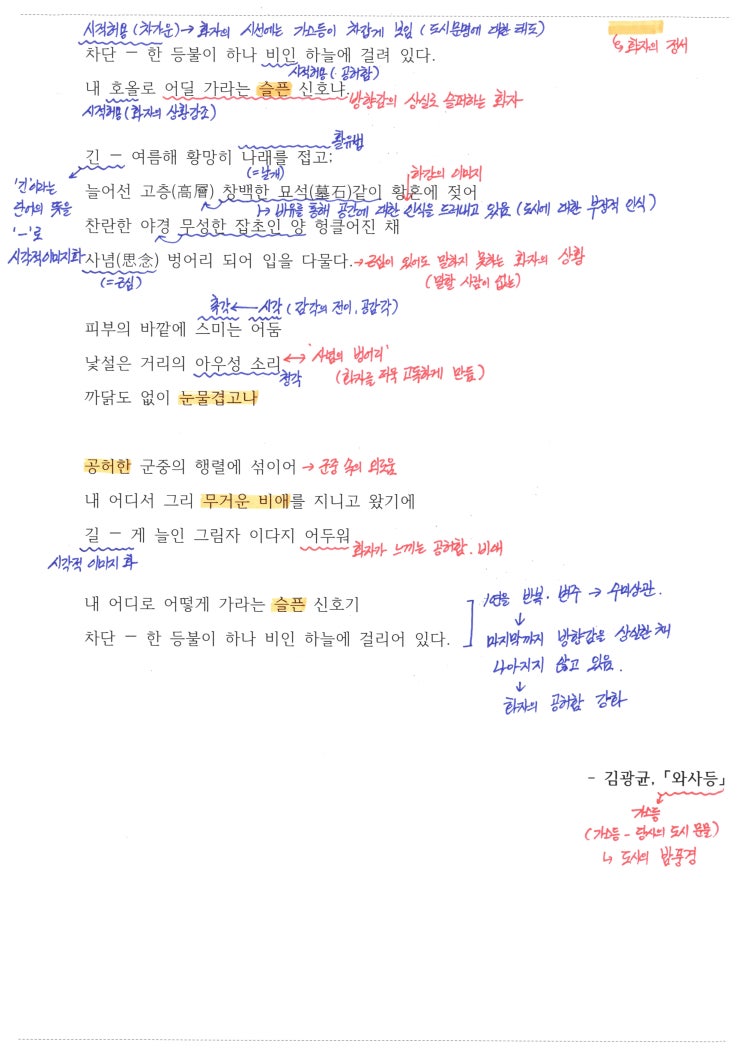 시적허용(차가운)→화자의 시선에는 가스등이 차갑게 보임 (도시문명에 대한 태도)
↳ 화자의 정서
차단 — 한 등불이 하나 비인 하늘에 걸려 있다.
시적허용( 공허함)
내 호올로 어딜 가라는 슬픈 신호냐.
방향감의 상실로 슬퍼하는 화자
시적허용(화자의 상황강조)
활유법
긴 — 여름해 황망히 나래를 접고;
(=날개)
하강의 이미지
'긴'이라는 단어의 뜻을 '—'로 시각적이미지화
늘어선 고층(高層) 창백한 묘석(墓石)같이 황혼에 젖어
↳ 비유를 통해 공간에 대한 인식을 드러내고 있음 (도시에 대한 부정적 인식)
찬란한 야경 무성한 잡초인 양 헝클어진 채
사념(思念) 벙어리 되어 입을 다물다.
→근심이 있어도 말하지 못하는 화자의 상황
(=근심)
(말할 사람이 없는)
촉각←시각 (감각의 전이, 공감각)
피부의 바깥에 스미는 어둠
낯설은 거리의 아우성 소리
↔ '사념의 벙어리'
청각
(화자를 더욱 고독하게 만듦)
까닭도 없이 눈물겹고나
공허한 군중의 행렬에 섞이어
→ 군중 속의 외로움
내 어디서 그리 무거운 비애를 지니고 왔기에
길 — 게 늘인 그림자 이다지 어두워
화자가 느끼는 공허함. 비애
시각적 이미지화
내 어디로 어떻게 가라는 슬픈 신호기
차단 — 한 등불이 하나 비인 하늘에 걸리어 있다.
1연을 반복·변주 → 수미상관.
↓
마지막까지 방향감을 상실한 채
나아지지 않고 있음.
↓
화자의 공허함 강화
- 김광균, 「와사등」
가스등
(가스등 - 당시의 도시 문물)
↳ 도시의 밤풍경